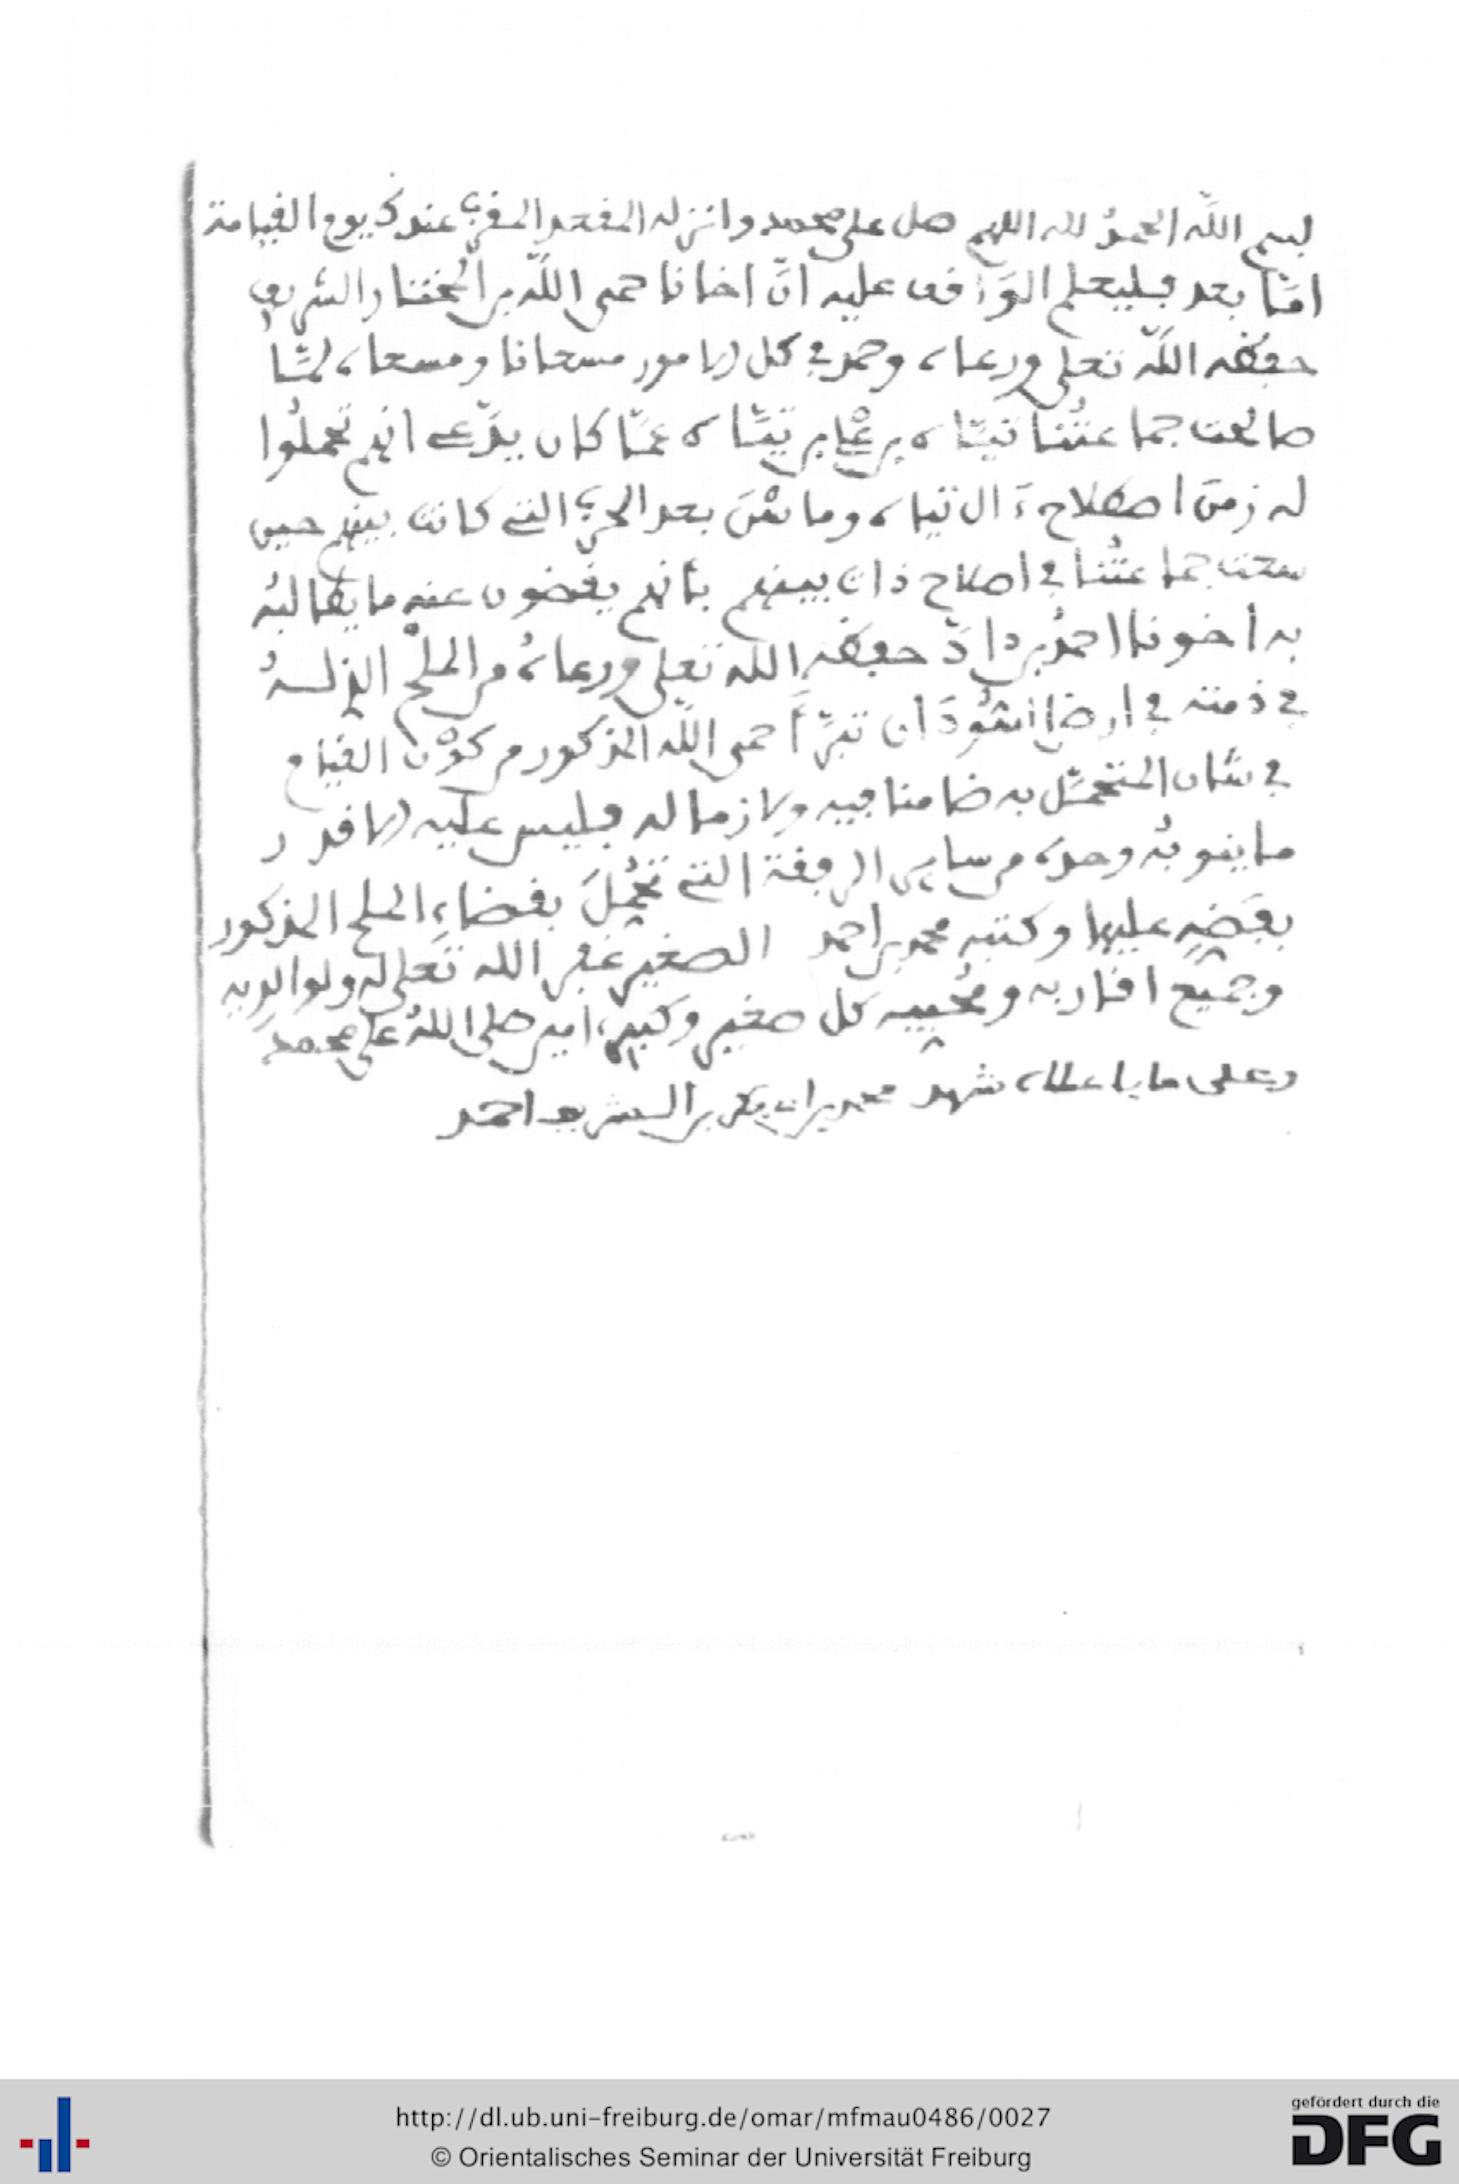 بسم اللّه الحمدُ لله اللهم صل على محمد وانزله المقعد المقرب عندك يوم القيامة
امّا بعد فليعلم الوَاقف عليه انّ اخانا حمى اللّه بن المُختار الشريف
حفظه اللّه تعلى ورعاه وحمد في كل الامور مسعانا ومسعاه لمّا
صالحت جماعتُنا تيّاه بن عْمَا بن تيَّاه عمّا كان يدّعى انهم تحملُوا
له زمنَ اصطلاحَ ال تياه وما بعد الحرب التى كانت بينهم حين
سعت جماعتُنا في اصلاح ذات بينهم بأنهم يقضون عنه ما يطالبُه
به أخونا احمدُ بن دادّ حفظه الله تعلى ورعاهُ من الملْح الذ لهُ
في ذمته في ارض ان تبرّأ حمى اللّه المذكور من كوْن القيام
في شان المتحمّل به ضامنا فيه ولازما له فليس عليه الا قدر
ما ينوبُه وحده من ساير الرفقة التى تحُمِّلَ بقضاءِ الملح المذكور
بقَضِه عليها وكتبه محمد بن احمد الصغير غفر الله تعَلى له ولوالديه
وجميع اقاربه ومُحبيه كل صغير وكبير امين صلى اللهُ على محمدَ
وعلى ما شهد محمد بن ابن الشريف احمد
http://dl.ub.uni-freiburg.de/omar/mfmau0486/0027
© Orientalisches Seminar der Universität Freiburg
gefördert durch die
DFG